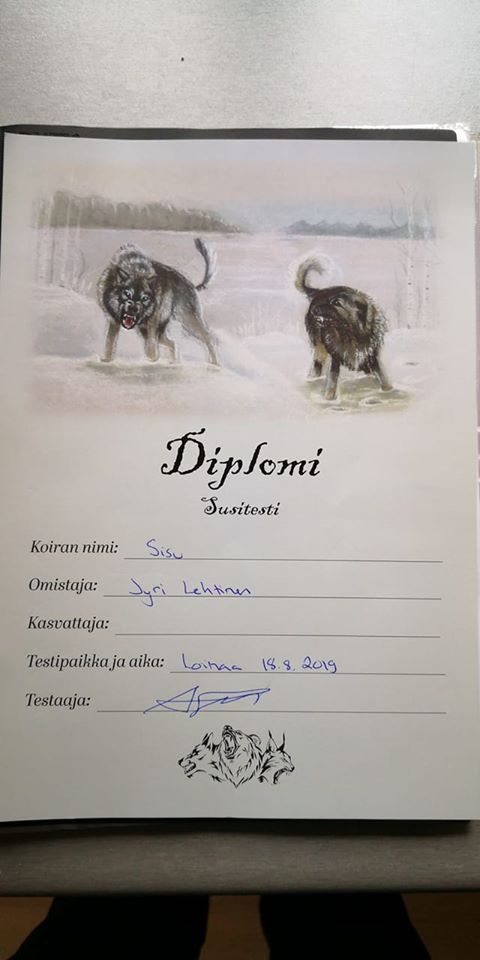 Diplomi
Susitesti
Koiran nimi: Sisu
Omistaja: Jyri Lehtinen
Kasvattaja:
Testipaikka ja aika: Loimaa 18.8.2019
Testaaja: